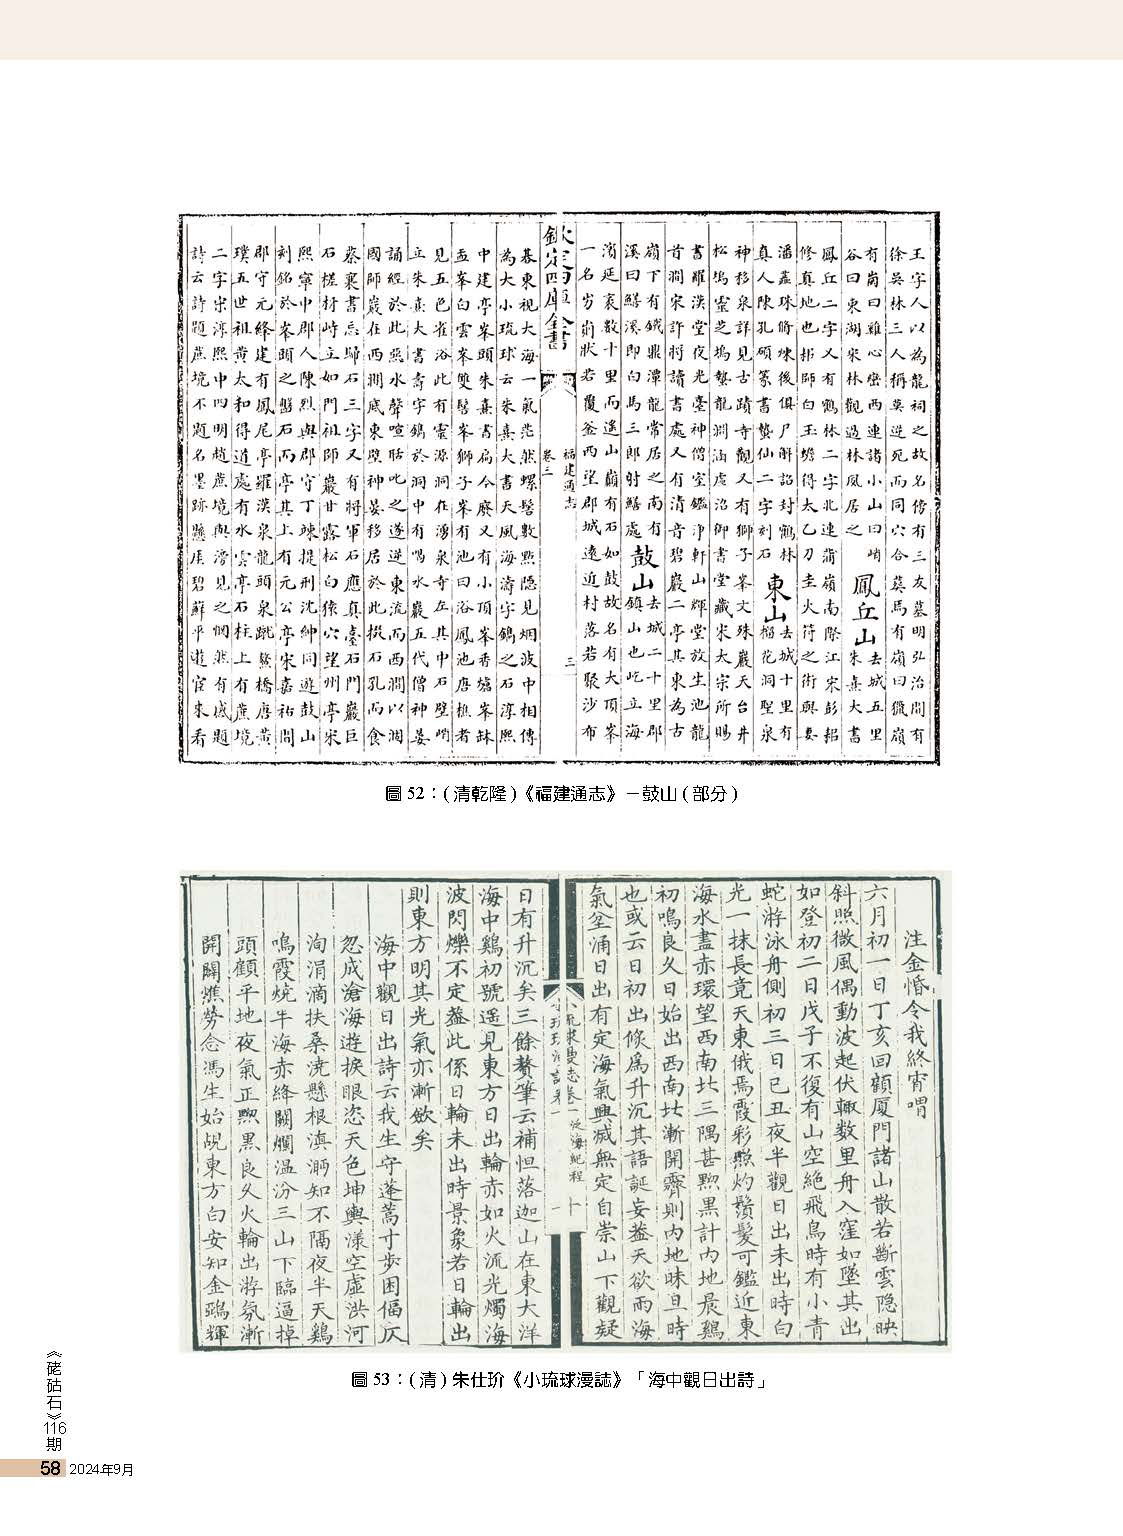 王字人以為龍祠之故名傍有三友墓明弘治間有
徐吳林三人稱莫逆死而同穴合葬馬有嶺曰獵嶺
有崗曰雞心巒西連諸小山曰峭
谷曰東湖宋林觀過林風居之
鳳丘山
去城五里
朱熹大書
鳳丘二字又有鶴林二字北連蒲嶺南際江宋彭耜
修真地也耜師白玉蟾得太乙刀圭火符之術與妻
潘蕋珠脩煉後俱尸解詔封鶴林
真人陳孔碩篆書蟄仙二字刻石
東山
去城十里有
榴花洞聖泉
神移泉詳見古蹟寺觀又有獅子峯文殊巖天台井
松塢靈芝塢蟄龍澗涵虛沼御書堂藏宋太宗所賜
書羅漢堂夜光臺神僧室鑑淨軒山輝堂放生池龍
首澗宋許將讀書處又有清音碧巖二亭其東為古
嶺下有鐵鼎潭龍常居之南有
溪曰鱔溪即白馬三郎射鱔處
鼓山
去城二十里郡
鎮山也屹立海
濱延袤數十里而遙山巔有石如鼓故名有大頂峯
一名岃崱狀若覆釜西望郡城遠近村落若聚沙布
欽定四庫全書
福建通志
卷三
三
碁東視大海一氣茫然螺髻數點隱見烟波中相傳
為大小琉球云朱熹大書天風海濤字鐫之石淳熙
中建亭峯頭朱熹書扁今廢又有小頂峯香爐峯缽
盂峯白雲峯雙髻峯獅子峯有池曰浴鳳池唐樵者
見五色雀浴此有靈源洞在湧泉寺左其中石壁峭
立朱熹大書壽字鐫於洞中有喝水巖五代僧神晏
誦經於此惡水聲喧聒叱之遂逆東流而西澗以涸
國師巖在西澗底東壁神晏移居於此掇石孔而食
蔡襄書忘歸石三字又有將軍石應真臺石門巖巨
石槎枒峙立如門祖師巖甘露松白猿穴望州亭宋
熙寧中郡人陳烈與郡守丁竦提刑沈紳同遊鼓山
刻銘於峯頭之盤石而亭其上有元公亭宋嘉祐間
郡守元絳建有鳳尾亭羅漢泉龍頭泉跳鰲橋唐黃
璞五世祖黃太和得道處有水雲亭石柱上有蔗境
二字宋淳熙中四明趙蔗境與滂見之惘然有感題
詩云詩題蔗境不題名墨跡懸崖碧蘚平遊宦來看
圖 52：( 清乾隆 )《福建通志》－鼓山 ( 部分 )
注金惛令我終宵喟
六月初一日丁亥回顧厦門諸山散若斷雲隐映
斜照微風偶動波起伏輙数里舟入窪如墜其出
如登初二日戊子不復有山空絶飛鳥時有小青
蛇游泳舟側初三日已丑夜半觀日出未出時白
光一抹長竟天東俄焉霞彩㷖灼鬚髮可鑑近東
海水盡赤環望西南北三隅甚黙黒計内地晨鷄
初鳴良久日始出西南北漸開霽則内地昧旦時
也或云日初出倐爲升沉其語誕妄葢天欲雨海
氣坌涌日出有定海氣興滅無定自崇山下觀疑
小琉球漫志卷一
泛海紀程
十一
日有升沉矣三餘贅筆云補怛落迦山在東大洋
海中鷄初號遥見東方日出輪赤如火流光燭海
波閃爍不定葢此係日輪未出時景象若日輪出
則東方明其光氣亦漸歛矣
海中觀日出詩云我生守蓬蒿寸歩困偪仄
忽成滄海遊捩眼恣天色坤輿漾空虛洪河
洶涓滴扶桑洗懸根滇沔知不隔夜半天鷄
鳴霞烧半海赤絳闕爛温汾三山下臨逼掉
頭顧平地夜氣正黙黒良久火輪出游氛漸
開闢燋勞念馮生始覘東方白安知金鵶輝
圖 53：( 清 ) 朱仕玠《小琉球漫誌》「海中觀日出詩」
《硓𥑮石》116期
58 2024年9月